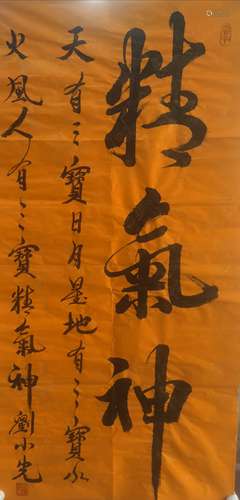 精氣神
天有三寶日月星地有三寶水
火風人有三寶精氣神劉小光